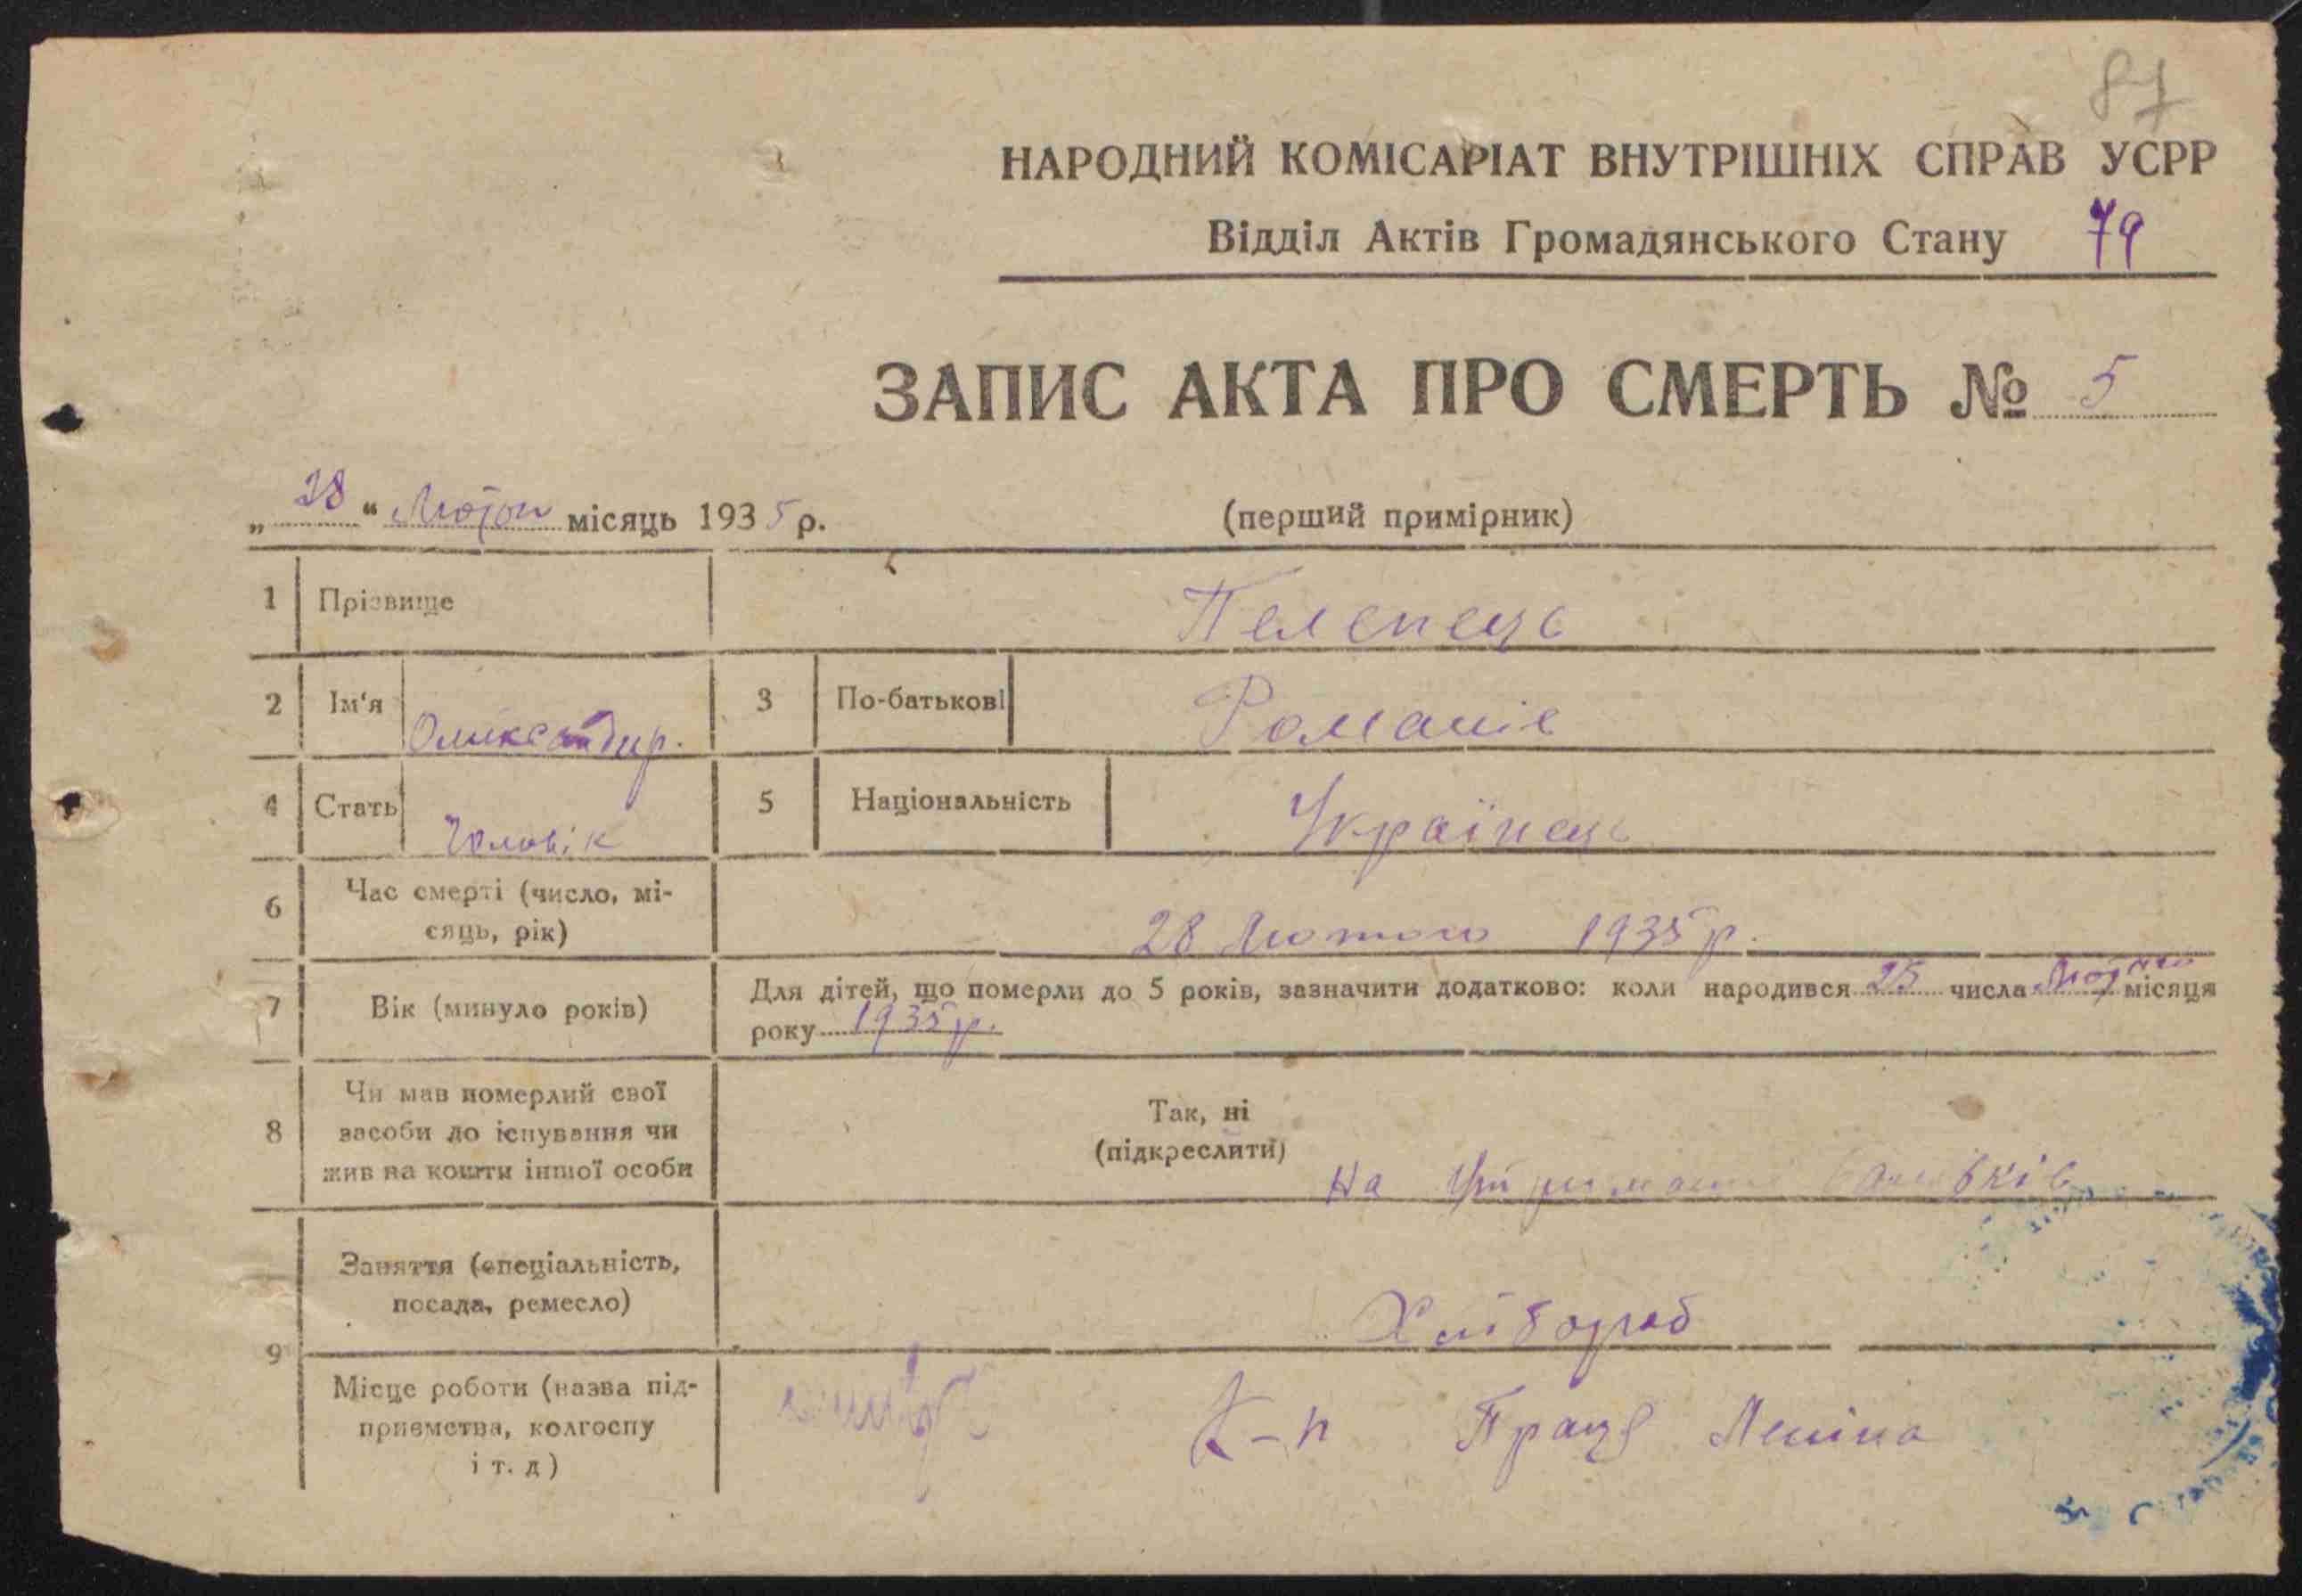 87
НАРОДНИЙ КОМІСАРІАТ ВНУТРІШНІХ СПРАВ УСРР
Відділ Актів Громадянського Стану 79
ЗАПИС АКТА ПРО СМЕРТЬ № 5
„28“ Лютого місяць 1935 р. (перший примірник)
1 Прізвище Пелепець
2 Ім‘я Олександир. 3 По-батькові Романів
4 Стать Чоловік 5 Національність Українець
6 Час смерті (число, мі-
сяць, рік) 28 Лютого 1935 р.
7 Вік (минуло років) Для дітей, що померли до 5 років, зазначити додатково: коли народився 25 числа Лютого місяця
року 1935 р.
8 Чи мав померлий свої
засоби до існування чи
жив на кошти іншої особи
Так, ні
(підкреслити)
на утриманні батьків
9 Заняття (спеціальність,
посада, ремесло) Хлібороб
Місце роботи (назва під-
приємства, колгоспу
і т. д) К-п Праця Леніна